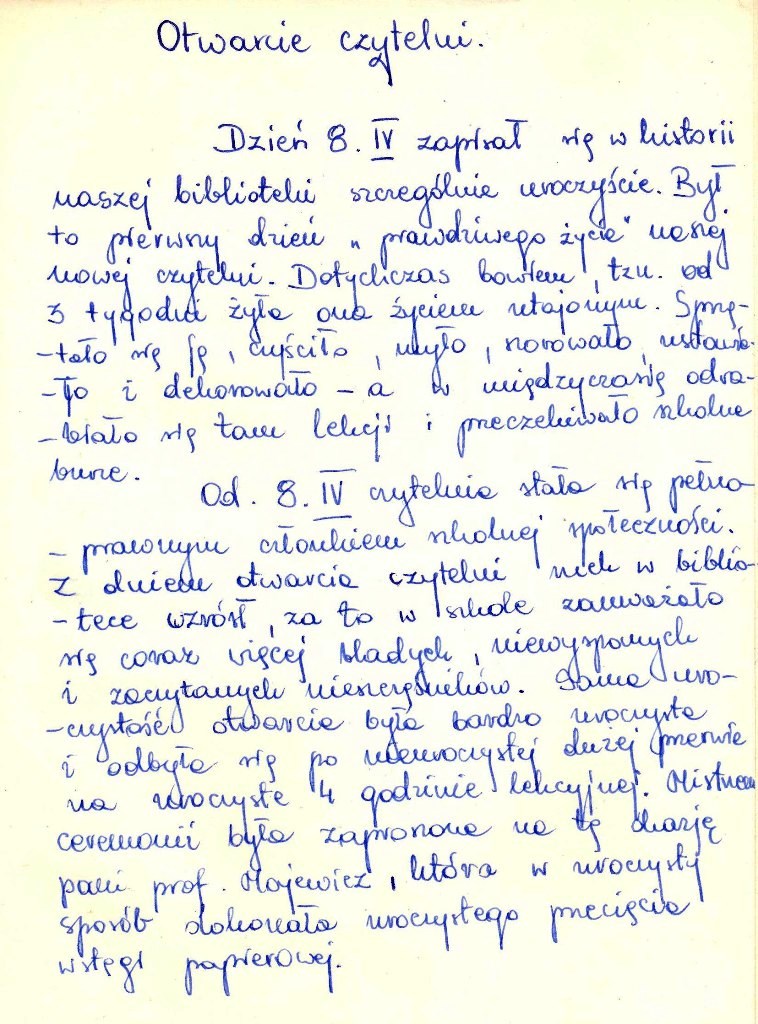 Otwarcie czytelni.
Dzień 8. IV zapisał się w historii
naszej biblioteki szczególnie uroczyście. Był
to pierwszy dzień „prawdziwego życia" naszej
nowej czytelni. Dotychczas bowiem, tzn. od
3 tygodni żyła ona życiem utajonym. Sprzę-
-tało się ją, czyściło, myło, norowało, ustawia-
-ło i dekorowało – a w międzyczasie odra-
-biało się tam lekcji i przeczekiwało szkolne
burze.
Od. 8. IV czytelnia stała się pełno-
- prawnym członkiem szkolnej społeczności.
Z dniem otwarcia czytelni ruch w biblio-
-tece wzrósł, za to w szkole zauważało
się coraz więcej bladych, niewyspanych
i zaczytanych nieszczęśników. Sama uro-
-czystość otwarcia była bardzo uroczysta
i odbyła się po nieuroczystej dużej przerwie
na uroczyste 4 godzinie lekcyjnej. Mistrzem
ceremonii była zaproszona na tę okazję
pani prof. Majewicz, która w uroczysty
sposób dokonała uroczystego przecięcia
wstęgi papierowej.